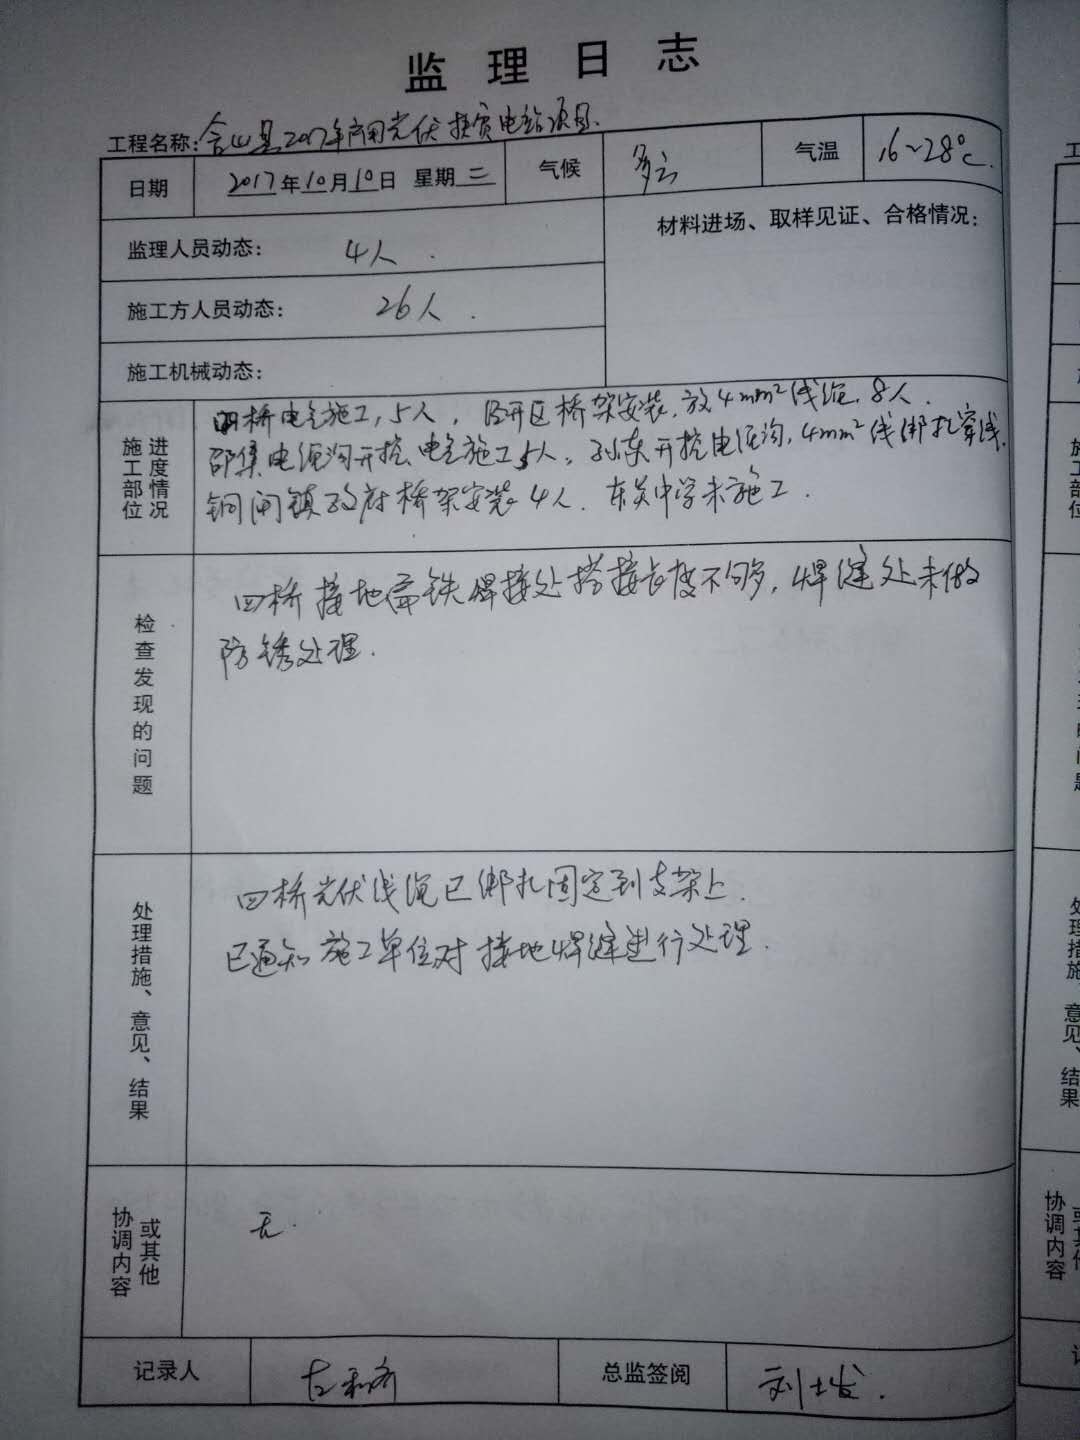 监理日志
工程名称:含山县2017年商用光伏扶贫电站项目.
日期 2017年10月10日 星期三 气候 多云 气温 16~28℃.
监理人员动态: 4人.
材料进场、取样见证、合格情况:
施工方人员动态: 26人.
施工机械动态:
施工部位 进度情况
四桥电气施工,5人, 经开区桥架安装,放4mm²线缆,8人.
邵集电缆沟开挖,电气施工5人。孙东开挖电缆沟,4mm²线绑扎穿线.
铜闸镇政府桥架安装4人. 东关中学未施工.
检查发现的问题
四桥接地扁铁焊接处搭接长度不够,焊缝处未做
防锈处理.
处理措施、意见、结果
四桥光伏线缆已绑扎固定到支架上.
已通知施工单位对接地焊缝进行处理.
协调内容 或其他
无.
记录人 总监签阅 刘